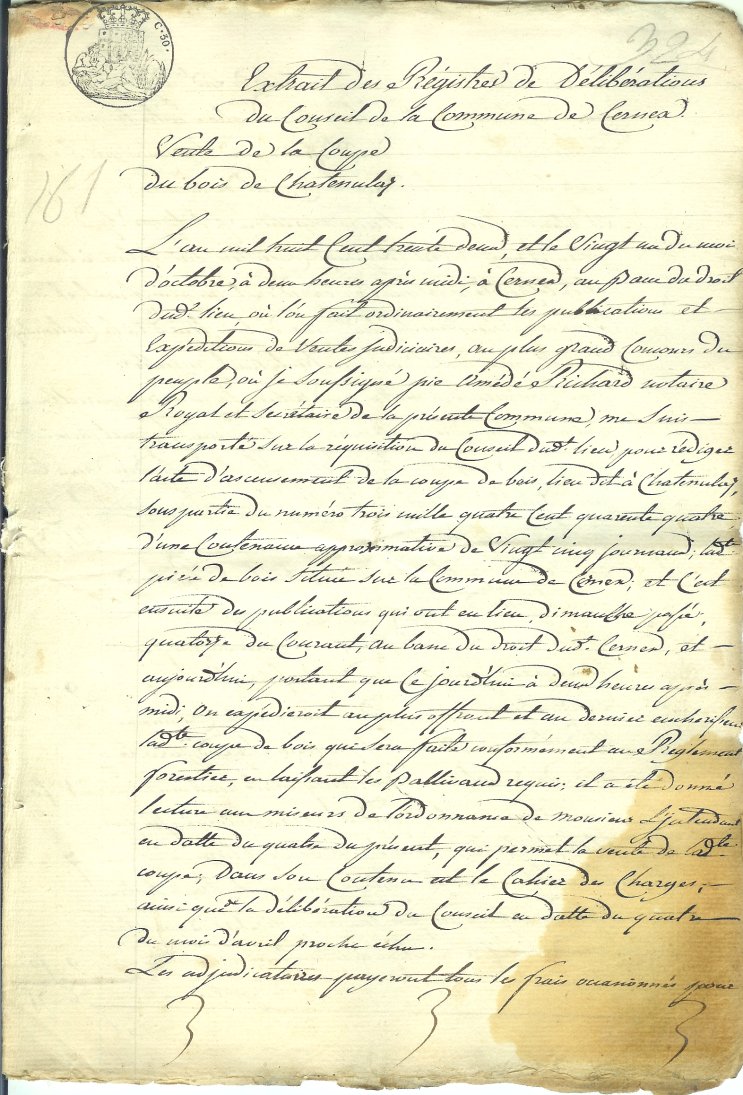 C. 30.
324
Extrait des Régistres de Délibérations
du Conseil de la Commune de Cernex
Vente de la Coupe
du bois de Chatenulaz.
161
L'an mil huit Cent trente deux, et le Vingt un du mois
d'octobre, à deux heures après midi, à Cernex, au banc du droit
dud.t lieu où l'on fait ordinairement les publications et
Expéditions de Ventes judiciaires, au plus grand Concours du
peuple, où je soussigné pre Amédé Richard notaire
Royal et Secrétaire de la présente Commune, me suis
transporté sur la réquisition du Conseil dud.t lieu, pour rédiger
l'acte d'ascensement de la coupe de bois, lieu dit à Chatenulaz,
sous partie du numéro trois mille quatre Cent quarente quatre
d'une Contenance approximative de Vingt cinq journaux, lad.te
pièce de bois Située sur la Commune de Cernex; et C'est
ensuite des publications qui ont eu lieu, dimanche passé,
quatorze du Courant, au banc du droit dud.t Cernex, et
aujourd'hui, portant que Ce jourd'hui à deux heures après
midi, on expédieroit au plus offrant et au dernier enchérisseur
lad.te coupe de bois qui sera faite conformément au Réglement
forestier, en laissant les Pallivaud requis; il a été donné
lecture aux miseurs de l'ordonnance de monsieur L'jntendant
en datte du quatre du présent, qui permet la vente de lad.te
coupe; Dans son Contenu est le Cahier des Charges;
ainsi que la délibération du Conseil en datte du quatre
du mois d'avril proche échu.
Les adjudicataires payeront tous les frais ocasionnés pour